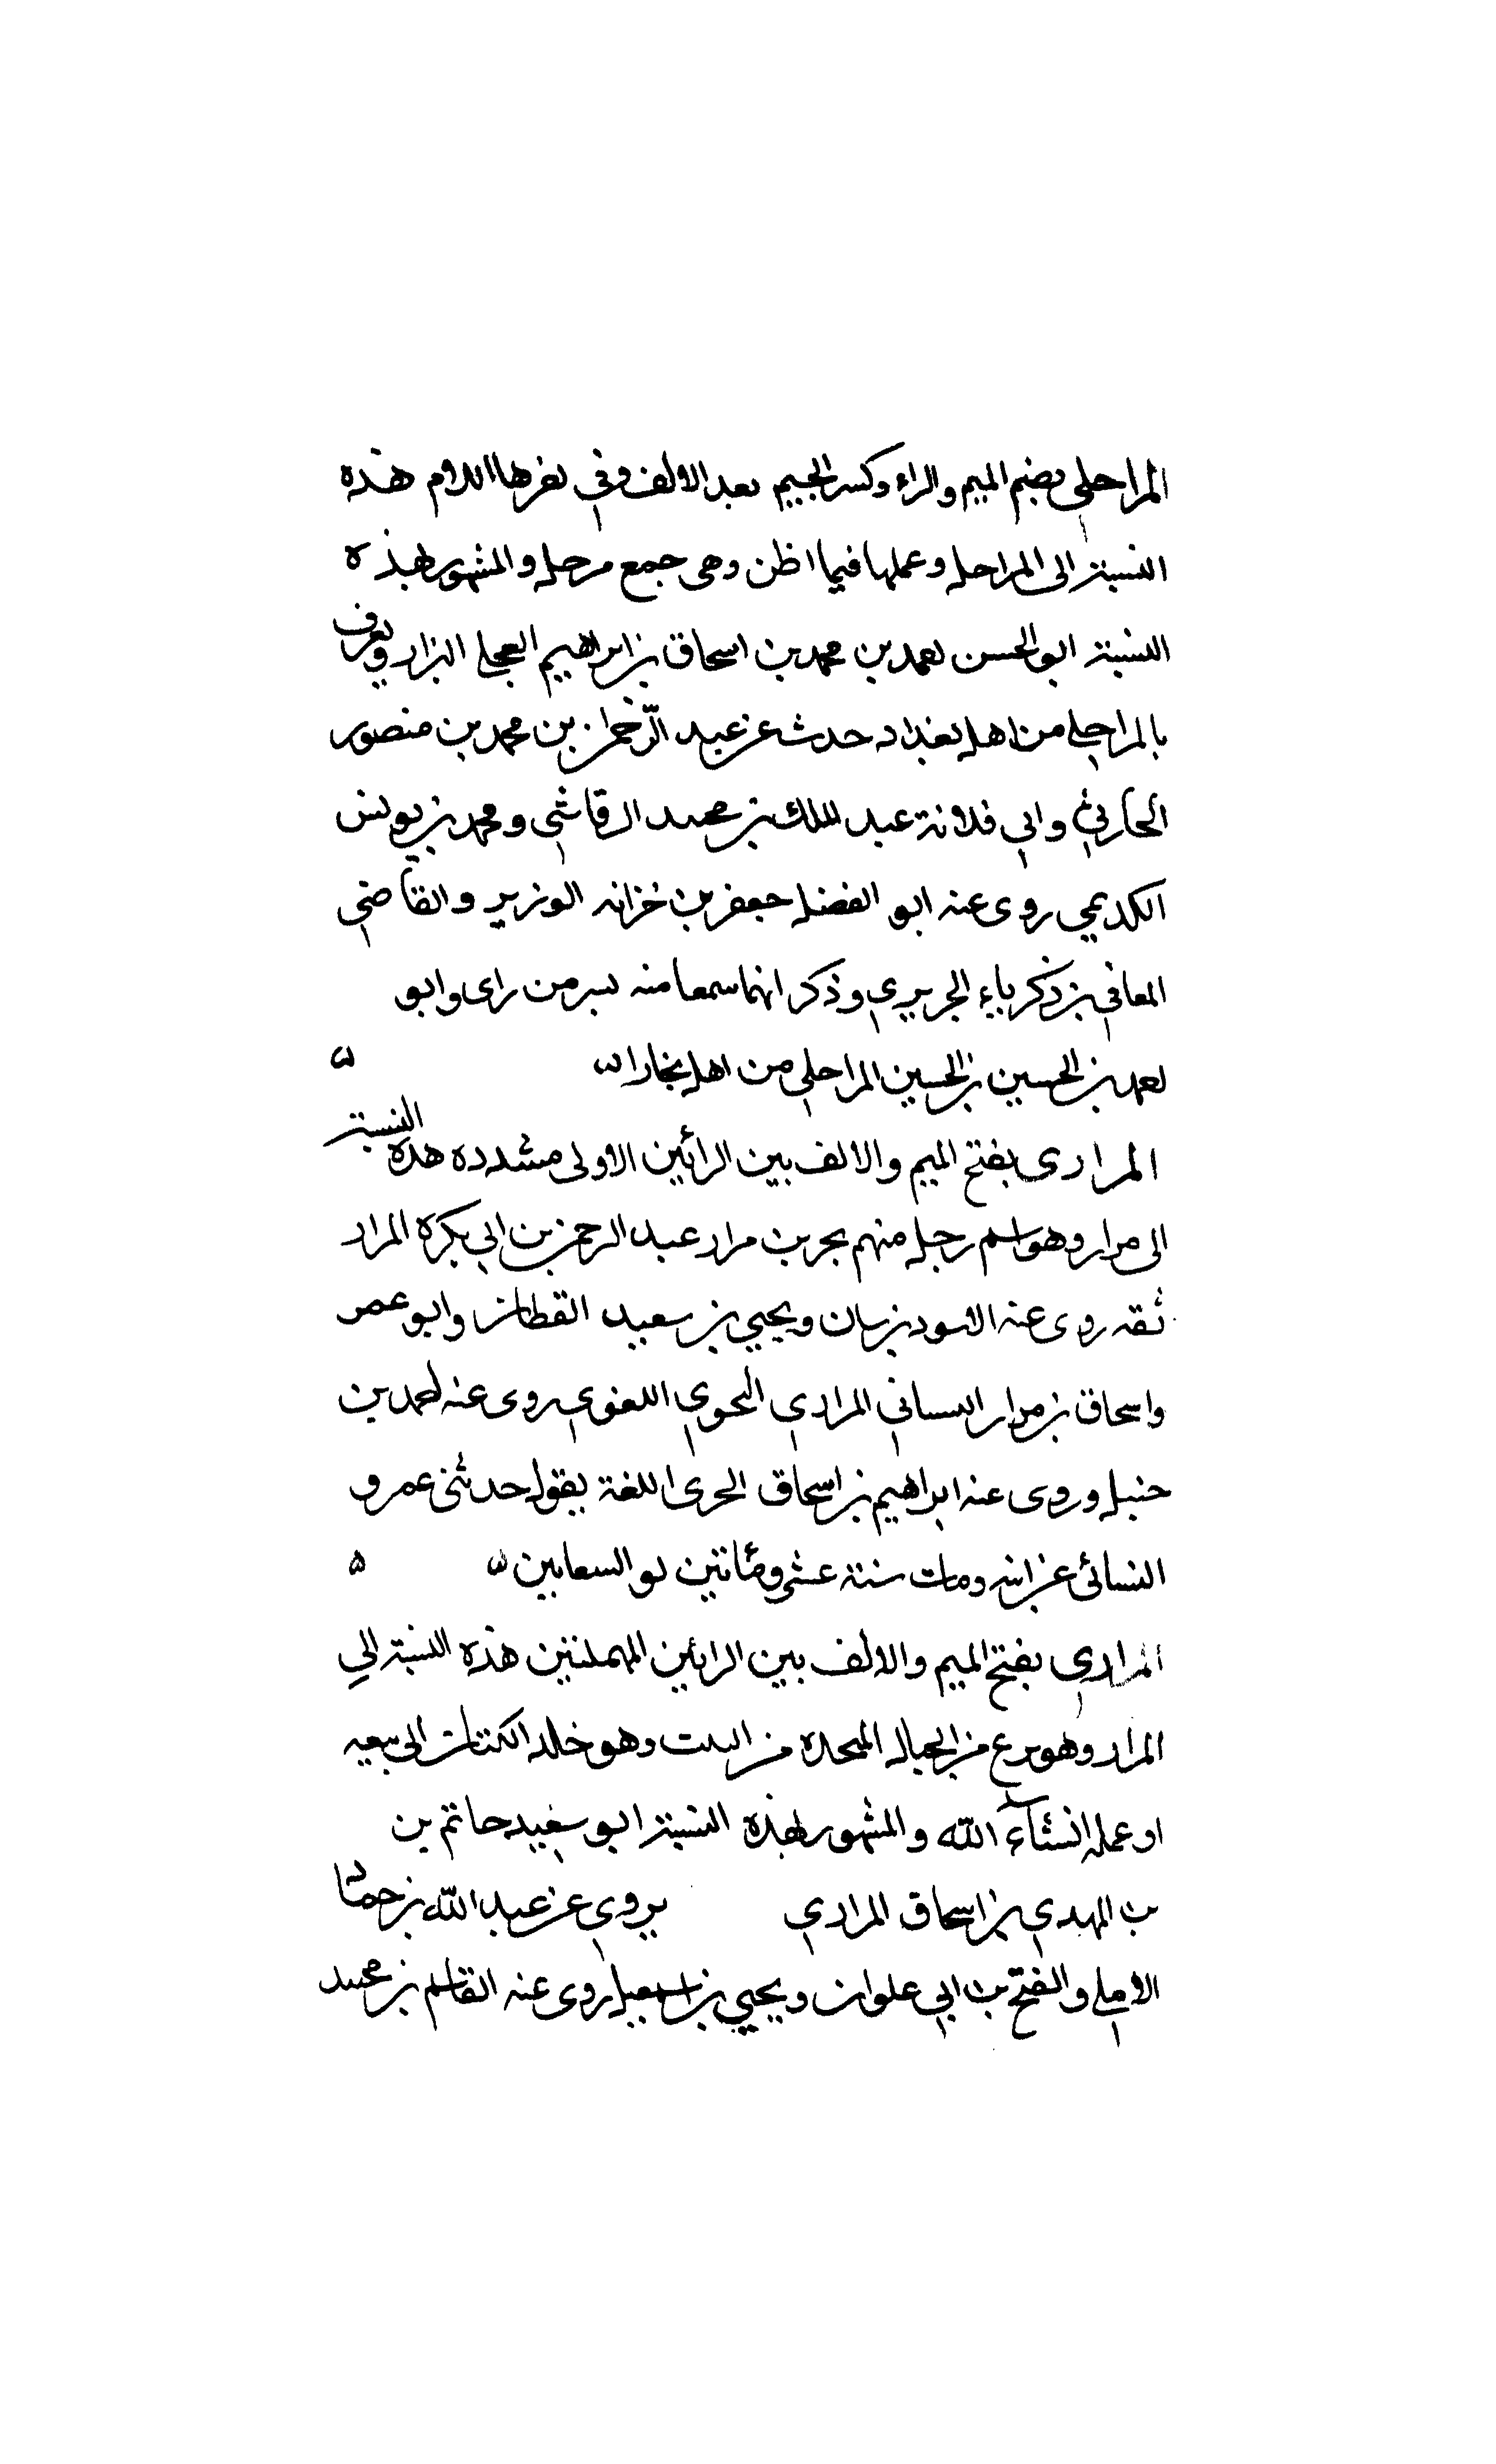 المراحلي بضم الميم والراء وكسر الجيم بعد الالف وفي اخرها اللام هذه
النسبة الى المراحل وعملها فيما اظن وهى جمع مرحل والمشهور بهذه
النسبة ابو الحسن احمد بن محمد بن اسحاق بن ابراهيم العجلي البزار ويعرف
بالمراجلي من اهل بغداد حدث عن عبد الرحمن بن محمد بن منصور
الحارثي وابي قلابة عبد الملك بن محمد الرقاشي ومحمد بن يونس
الكديمي روى عنه ابو الفضل جعفر بن خزانه الوزير والقاضي
المعافي بن زكرياء الجريري وذكر انهما سمعا منه بسر من راى وابو
احمد بن الحسين بن الحسين المراحلي من اهل بخارا
المرارى بفتح الميم والالف بين الرائين الاولى مشدده هذه النسبة
الى مرار وهو اسم رجل منهم بحر بن مرار عبد الرحمن بن ابي بكره المرار
ثقه روى عنه الاسود بن سان ويحيي بن سعيد القطان وابو عمر
واسحاق بن مرار السساني المراري النحوي اللغوي روى عنه احمد بن
حنبل وروى عنه ابراهيم بن اسحاق الحرى اللغة يقول حدثنى عمرو
النسائى عن ابيه ومات سنة عشر ومائتين السعابين
المراري بفتح الميم والالف بين الرايين المهملتين هذه النسبة الي
المرار وهو من الحبال المتحده من وهو خالد الكتان الى بيعه
او عمله انشاء الله والمشهور بهذه النسبة ابو سعيد حاتم بن
بن المهدي بن اسحاق المراري يروي عن عبد الله بن حماد
الاملي والفتح بن ابي علوان ويحيي بن اسمعيل روى عنه القاسم بن محمد